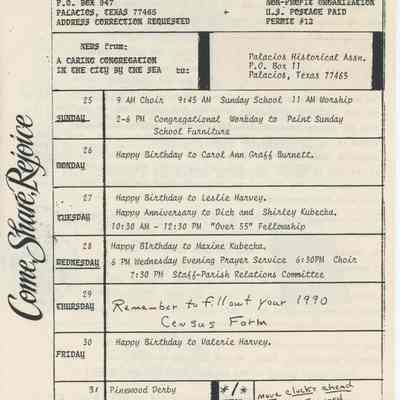 P.O. BOX 947
PALACIOS, TEXAS 77465
ADDRESS CORRECTION REQUESTED
+
NON-PROFIT ORGANIZATION
U.S. POSTAGE PAID
PERMIT #12
NEWS from:
A CARING CONGREGATION
IN THE CITY BY THE SEA to:
Palacios Historical Assn.
P.O. Box 11
Palacios, Texas 77465
Come Share, Rejoice
25
SUNDAY
9 AM Choir 9:45 AM Sunday School 11 AM Worship
2-6 PM Congregational Workday to Paint Sunday
School Furniture
26
MONDAY
Happy Birthday to Carol Ann Graff Burnett.
27
TUESDAY
Happy Birthday to Leslie Harvey.
Happy Anniversary to Dick and Shirley Kubecka.
10:30 AM - 12:30 PM "Over 55" Fellowship
28
WEDNESDAY
Happy BIrthday to Maxine Kubecka.
6 PM Wednesday Evening Prayer Service 6:30PM Choir
7:30 PM Staff-Parish Relations Committee
29
THURSDAY
Remember to fill out your 1990
Census Form
30
FRIDAY
Happy Birthday to Valerie Harvey.
31
Pinewood Derby
*/*
move clocks ahead